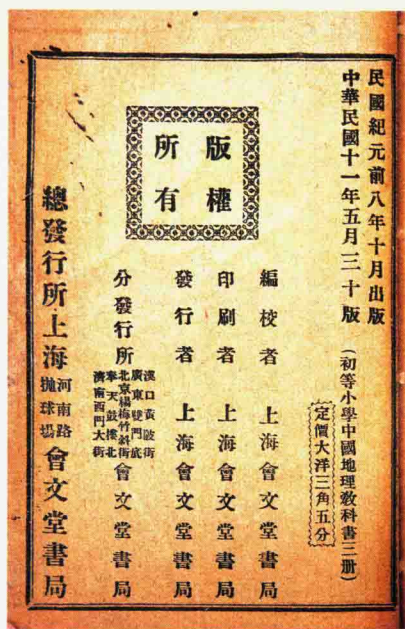 民國紀元前八年十月出版
中華民國十一年五月三十版
(初等小學中國地理教科書三册)
定價大洋三角五分
版權
所有
編校者 上海會文堂書局
印刷者 上海會文堂書局
發行者 上海會文堂書局
分發行所 漢口黃陂街
廣東雙門底
北京楊梅竹斜街
奉天鼓樓北
濟南西門大街
會文堂書局
總發行所上海河南路
拋球場
會文堂書局